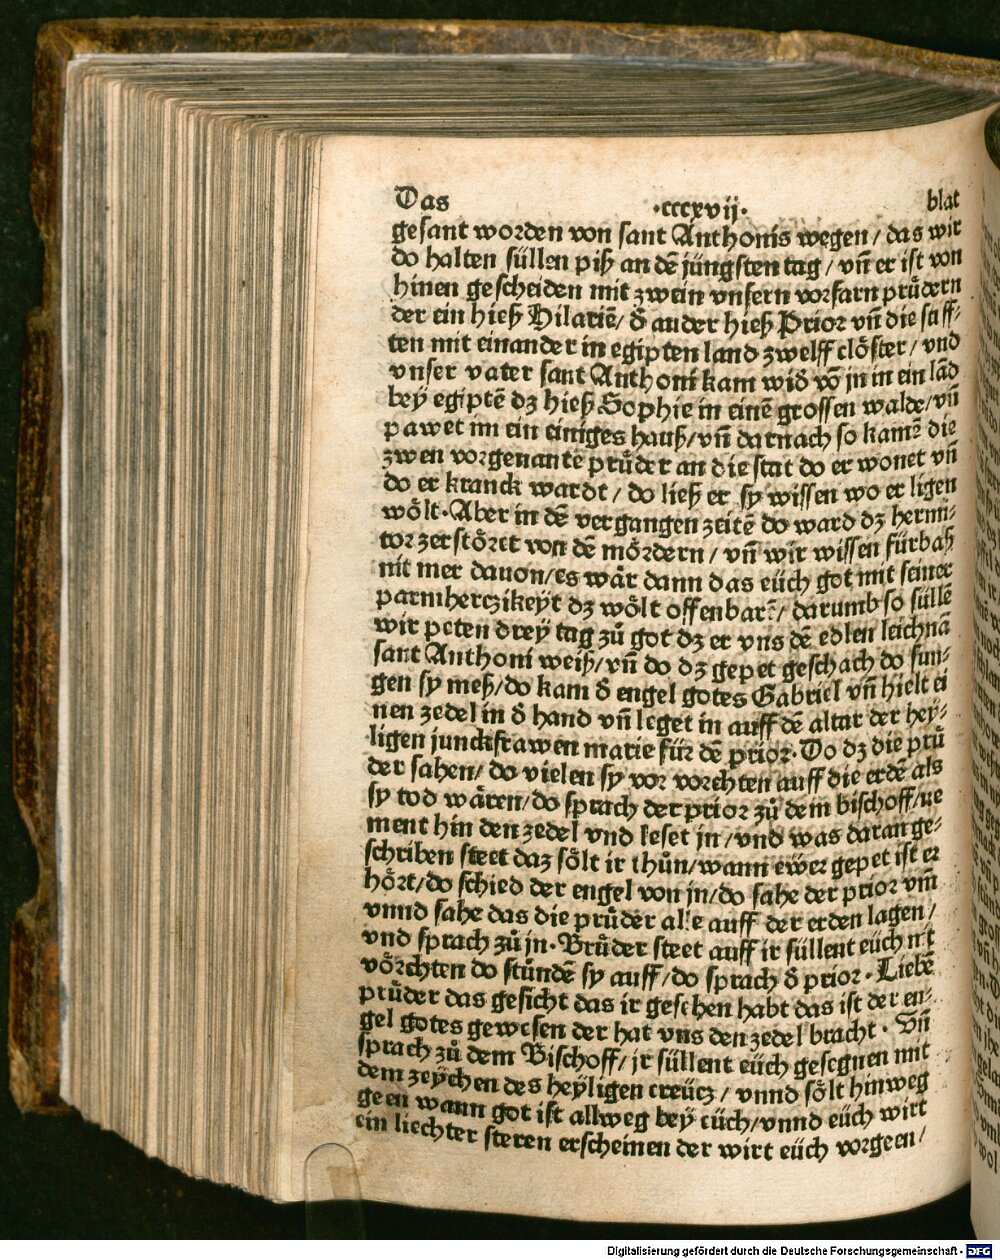 Das ·cccxvij· blat
gesant worden von sant Anthonis wegen / das wir
do halten süllen piß an dẽ jüngsten tag / vñ er ist von
hinen gescheiden mit zwein vnsern vorfarn průdern
der ein hieß Hilariẽ / ð ander hieß Prior vñ die stiff-
ten mit einander in egipten land zwelff clöster / vnd
vnser vater sant Anthoni kam wið võ jn in ein lãd
bey egiptẽ dz hieß Sophie in einẽ grossen walde / vñ
pawet im ein einiges hauß / vñ darnach so kamẽ die
zwen vorgenantẽ průder an die stat do er wonet vñ
do er kranck wardt / do ließ er sy wissen wo er ligen
wölt · Aber in dẽ vergangen zeitẽ do ward dz hermi-
tor zerstöret von dẽ mördern / vñ wir wissen fürbaß
nit mer dauon / es wär dann das eüch got mit seiner
parmherczikeyt dz wölt offenbarẽ / darumb so süllẽ
wir peten drey tag zů got dz er vns dẽ edlen leichnã
sant Anthoni weiß / vñ do dz gepet geschach do sun-
gen sy meß / do kam ð engel gotes Gabriel vñ hielt ei
nen zedel in ð hand vñ leget in auff dẽ altar der hey-
ligen junckfrawen marie für dẽ prior · Do dz die prů
der sahen / do vielen sy vor vorchten auff die erdẽ als
sy tod wären / do sprach der prior zů dem bischoff / ne
ment hin den zedel vnd leset jn / vnd was daran ge-
schriben steet daz sölt ir thůn / wann ewer gepet ist er
hört / do schied der engel von jn / do sahe der prior vm̃
vnnd sahe das die průder alle auff der erden lagen /
vnd sprach zů jn · Brůder steet auff ir süllent eüch nit
vörchten do stůndẽ sy auff / do sprach ð prior · Liebẽ
průder das gesicht das ir gesehen habt das ist der en-
gel gotes gewesen der hat vns den zedel bracht · Vñ
sprach zů dem Bischoff / jr süllent eüch gesegnen mit
dem zeychen des heyligen creücz / vnnd sölt hinweg
geen wann got ist allweg bey eüch / vnnd eüch wirt
ein liechter steren erscheinen der wirt eüch vorgeen /
Digitalisierung gefördert durch die Deutsche Forschungsgemeinschaft - DFG